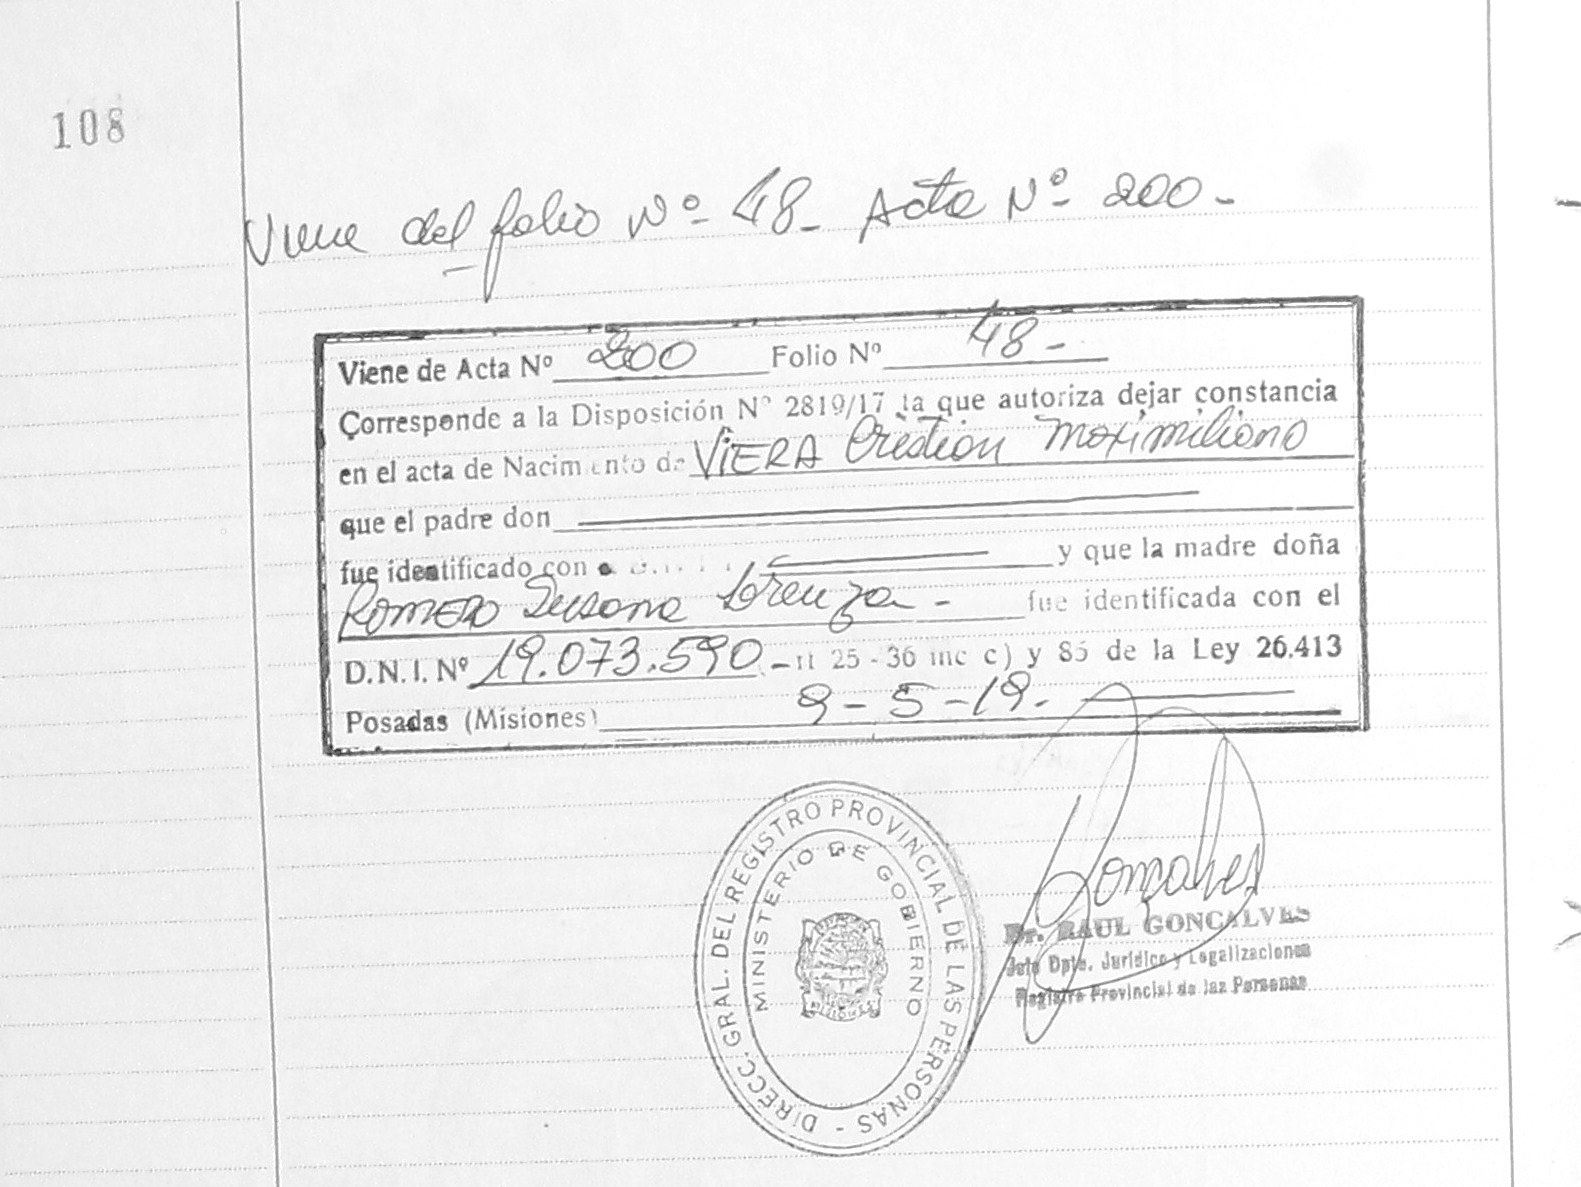 108
Viene del folio Nº 48 - Acta Nº 200 -
Viene de Acta Nº 200 Folio Nº 48 -
Corresponde a la Disposición Nº 2819/17 la que autoriza dejar constancia
en el acta de Nacimiento de VIERA Cristian Maximiliano
que el padre don
fue identificado con y que la madre doña
ROMERO Susana Lorenza - fue identificada con el
D.N.I. Nº 19.073.590 - rt 25 - 36 inc c) y 85 de la Ley 26.413
Posadas (Misiones) 9-5-19.
DIRECC. GRAL. DEL REGISTRO PROVINCIAL DE LAS PERSONAS -
MINISTERIO DE GOBIERNO
MISIONES
Gonçalves
Dr. RAUL GONCALVES
Jefe Dpto. Jurídico y Legalizaciones
Registro Provincial de las Personas